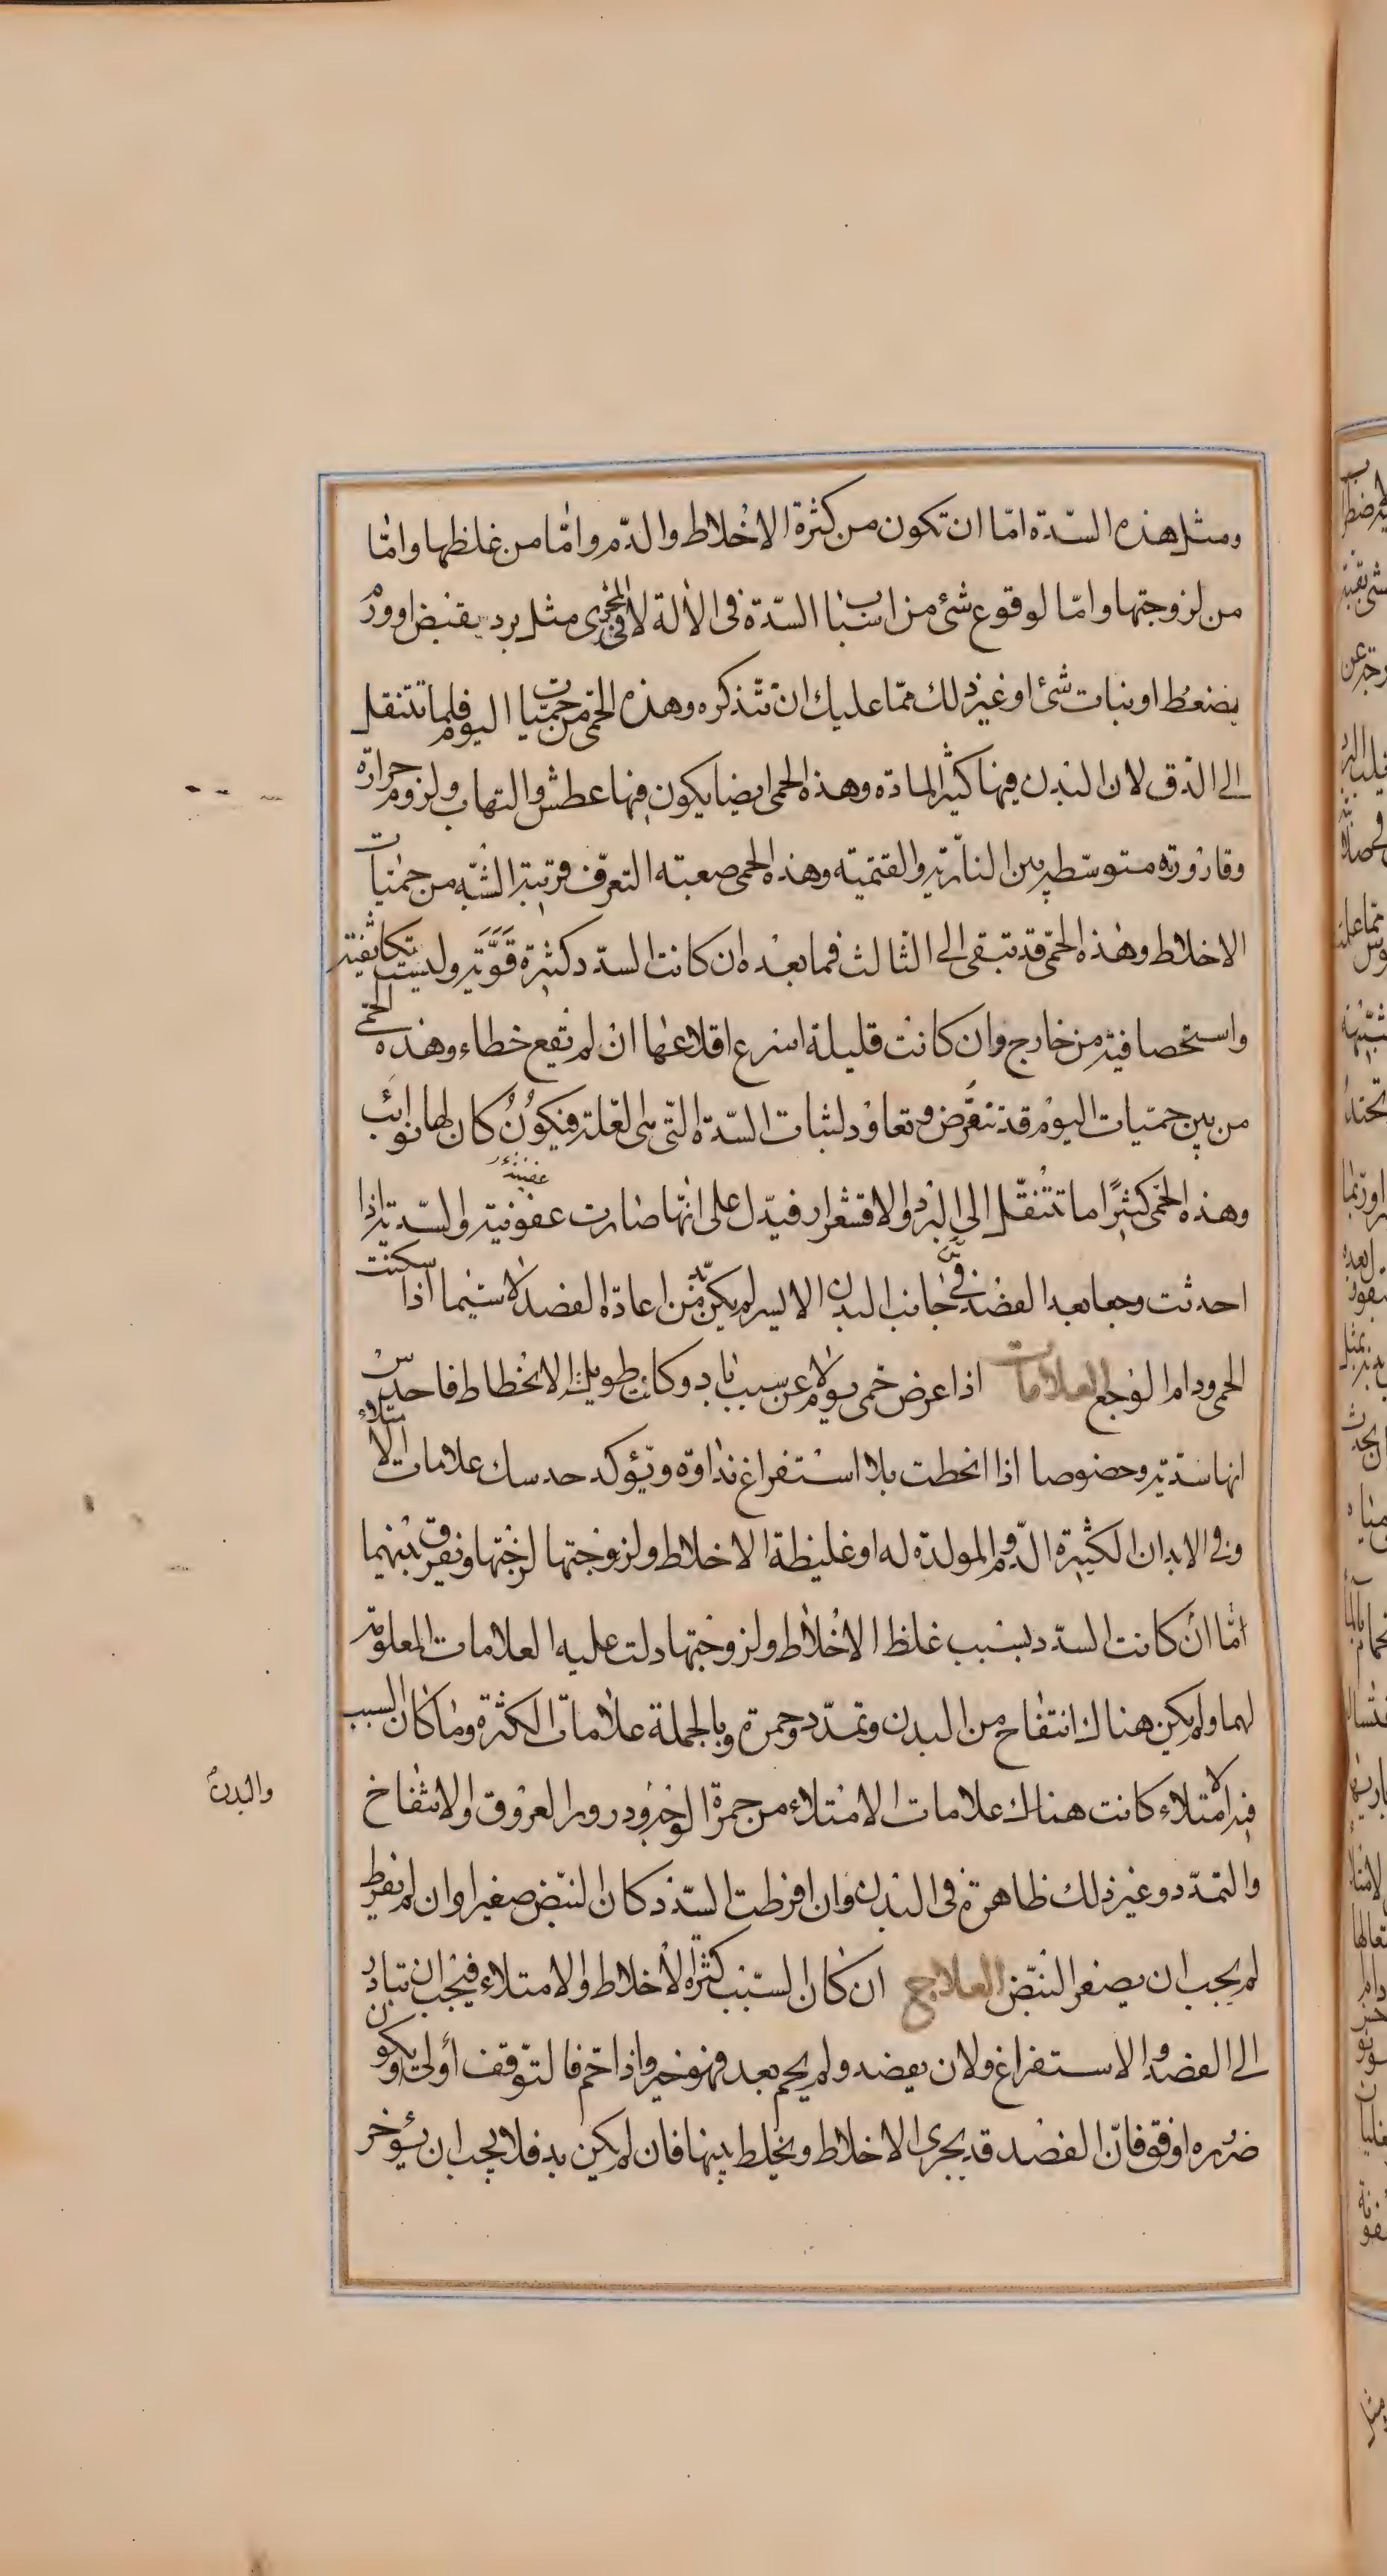 ومثل هذه السّدّة امّا ان تكون من كثرة الاخلاط والدّم وامّا من غلظها وامّا
من لزوجتها وامّا لوقوع شئ من اسباب السّدّة فى الالة لا فى المجرى مثل برد يقبض او ورم
يضغط او نبات شئ او غير ذلك ممّا عليك ان تتذكره وهذه الحمّى من حمّيات اليوم فلما تتنقل
الى الدّق لان البدن فيها كثير المادّة وهذه الحمى ايضا يكون فيها عطش والتهاب ولزوم حرارة
وقارورته متوسّطة بين الناريّة والقتميّة وهذه الحمى صعبته التعرّف قريبة الشبّه من حميّات
الاخلاط وهذه الحمّى قد تبقى الى الثّالث فما بعده ان كانت السدّد كثيرة قويّة وليست تكاثفية
واستحصافية من خارج وان كانت قليلة اسرع اقلاعها ان لم تقع خطاء وهذه الحمّى
من بين حمّيات اليوم قد تنقرض وتعاود لثبات السّدّة التّى هى العّلة فيكون كان لها نوائب
وهذه الحمّى كثيرًا ما تتنقّل الى البرد والاقشعرار فيدّل على انّها صارت عفونية والسّديّة اذا
احدثت وجعا بعد الفصد فى جانب البدن الايسر لم يكن بدّ من اعادّة الفصد لا سيّما اذا سكنت
الحمى ودام الوجع العلامات اذا عرض حمى يوم لا عن سبب باد وكانت طويلة الانحطاط فاحدس
انها سدّيّة وخصوصا اذا انحطت بلا استفراغ نداوة ويؤكد حدسك علامات الامتلاء
وفى الابدان الكثيرة الدّم والمولدة له او غليظة الاخلاط ولزوجتها لزجتها ونفرق بينهما
امّا ان كانت السدّد بسبب غلظ الاخلاط ولزوجتها دلت عليه العلامات المعلومة
لهما ولم يكن هناك انتفاخ من البدن وتمدّد وحمرة وبالجملة علامات الكثرة وما كان السبب
فيه الامتلاء كانت هناك علامات الامتلاء من حمرة الوجه ودرور العروق والانتفاخ
والبدن
والتمدّد وغير ذلك ظاهرة فى البدن وان افرطت السّدد كان النبّض صغيرا وان لم يفرط
لم يجب ان يصغر النبّض العلاج ان كان السّبب كثرة الاخلاط والامتلاء فيجب ان تبادر
الى الفصد والاستفراغ ولان يفصد ولم يحم بعد فهو خير واذا حم فالتوّقف أولى ويكون
ضروره اوفق فانّ الفصد قد يجرى الاخلاط ويخلط بينها فان لم يكن بد فلا يجب ان يؤخر